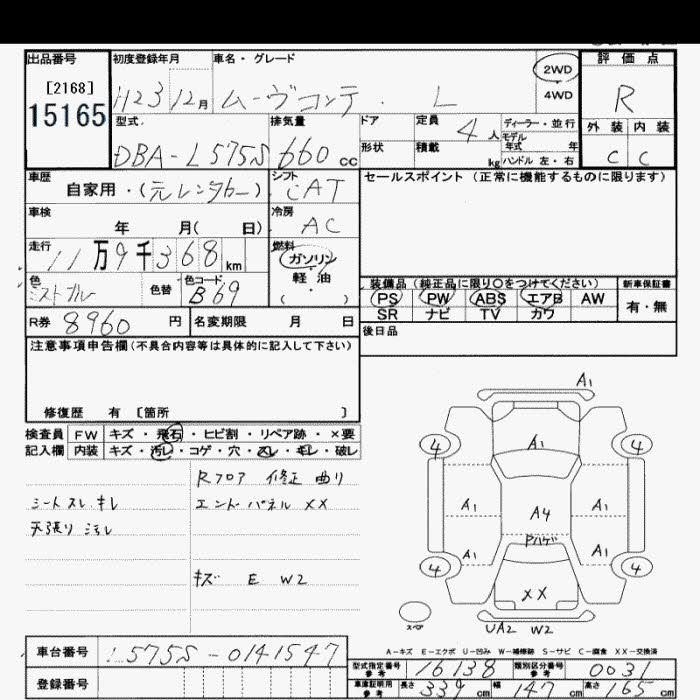 出品番号 初度登録年月 車名・グレード 2WD 評価点
[2168] H23 12月 ムーヴコンテ . L 4WD R
15165 型式. 排気量 ドア 定員 4人 ディーラー・並行 外装 内装
モデル年式 年
DBA-L575S 660cc 形状 積載 kg ハンドル 左・右 C C
車歴 自家用・(元レンタカー) シフト CAT セールスポイント(正常に機能するものに限ります)
車検 年 月( 日) 冷房 AC
走行 11万9千368km 燃料 ガソリン
軽・油
( ・ )
色 ミストブルー 色替 色コード B69 装備品(純正品に限り○をつけてください) 新車保証書
PS PW ABS エアB AW 有・無
SR ナビ TV カワ
R券 8960円 名変期限 月 日 後日品
注意事項申告欄(不具合内容等は具体的に記入して下さい)
修復歴 有 [箇所 ]
検査員 FW キズ・飛石・ヒビ割・リペア跡・×要
記入欄 内装 キズ・汚レ・コゲ・穴・スレ・キレ・破レ
Rフロア 修正 曲り
シートスレ.キレ エンドパネル XX
天張り 汚レ
キズ E W2
A1
4 A1 4
A1 A4 A1
A1 Pハゲ A1
4 XX 4
スペア UA2 W2
A-キズ E-エクボ U-凹み W-補修跡 S-サビ C-腐食 XX-交換済
車台番号 L575S-0141547 型式指定番号 参考 16138 類別区分番号 参考 0031
登録番号 車庫証明用 参考 長さ 339cm 幅 147cm 高さ 65cm